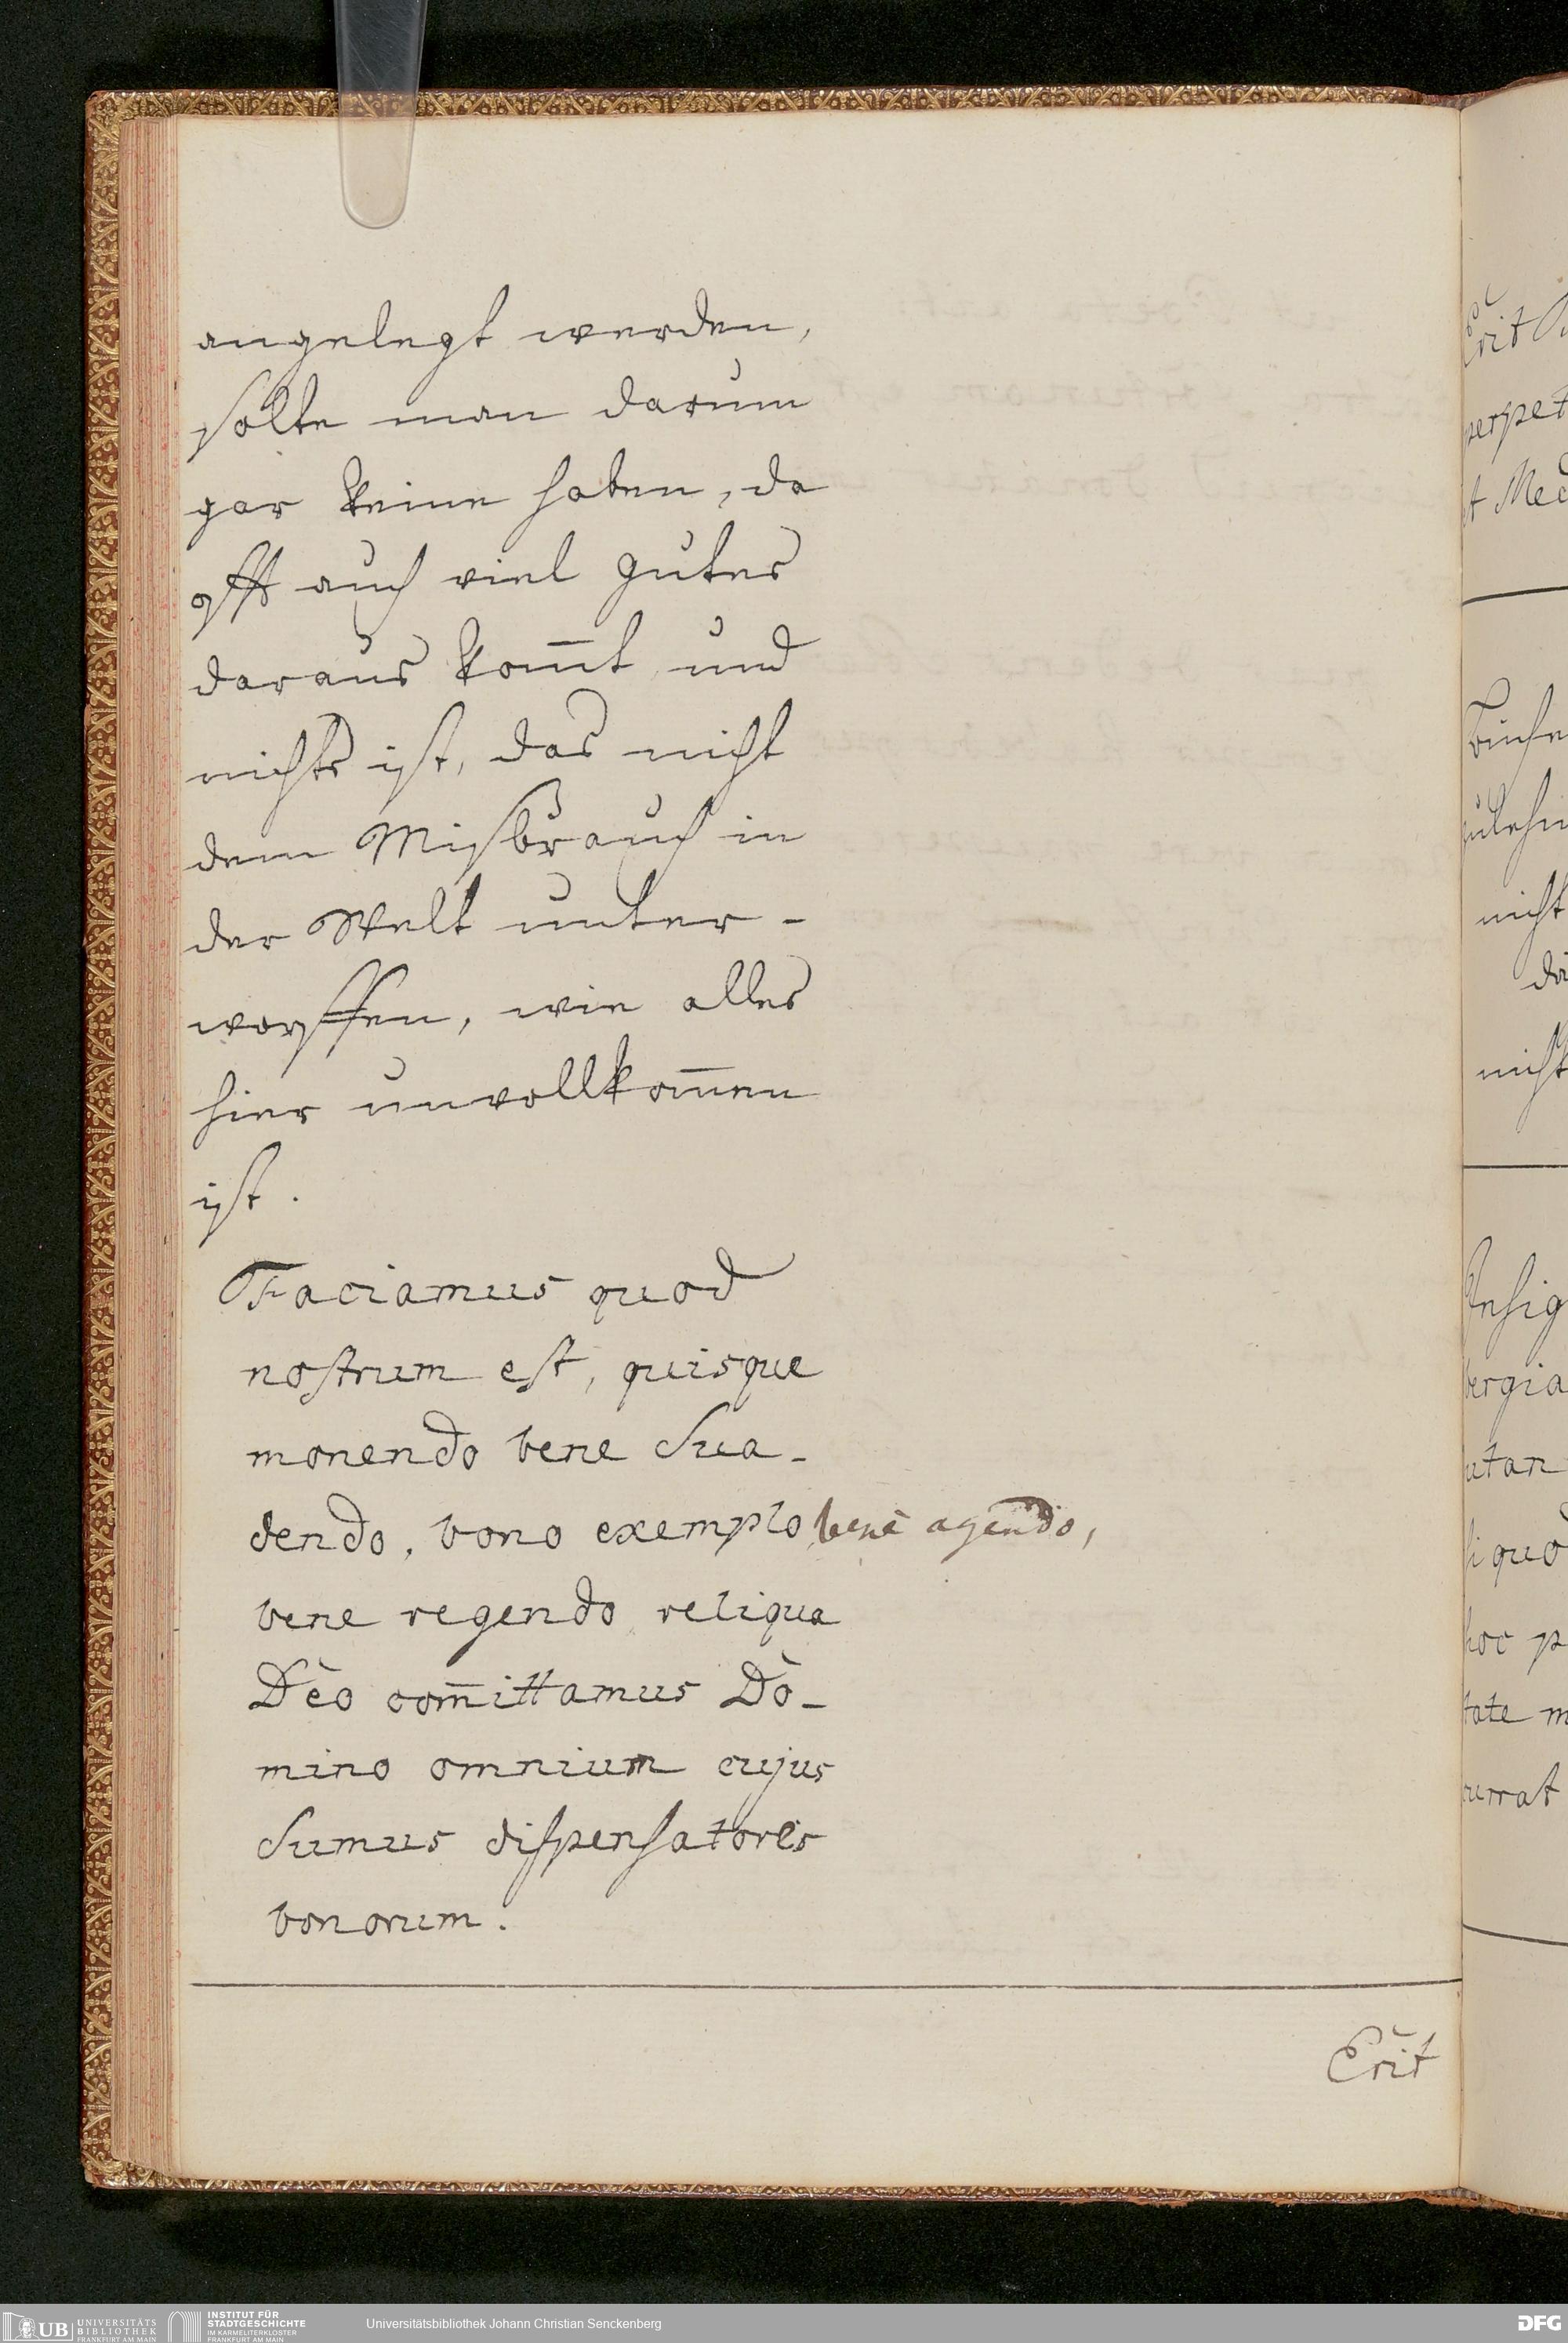 angelegt werden,
solte man darum
gar keine haben, da
offt auch viel gutes
daraus kom̅t und
nichts ist, das nicht
dem Misbrauch in
der Welt unter-
worffen, wie alles
hier unvollkom̅en
ist.
Faciamus quod
nostrum est, quisque
monendo bene sua-
dendo, bono exemplo, benè agendo,
bene regendo reliqua
Dèo com̅ittamus Dò-
mino omnium cujus
sumus dispensatores
bonorum.
Erit
Erit
perpet
nicht
nicht
bergia
utan
quod
hoc p
tate m
currat
UB UNIVERSITÄTS
BIBLIOTHEK
FRANKFURT AM MAIN
INSTITUT FÜR
STADTGESCHICHTE
IM KARMELITERKLOSTER
FRANKFURT AM MAIN
Universitätsbibliothek Johann Christian Senckenberg
DFG